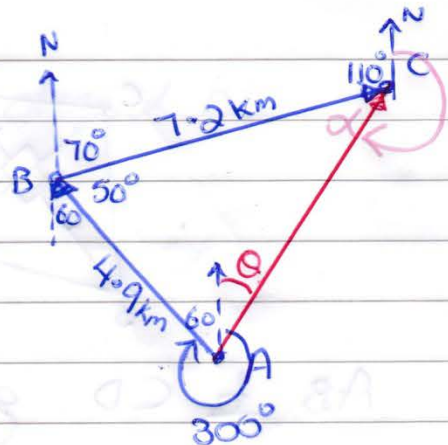 N
N
110°
C
7.2 km
70°
α
B
50°
60
θ
4.9km
60
A
300°